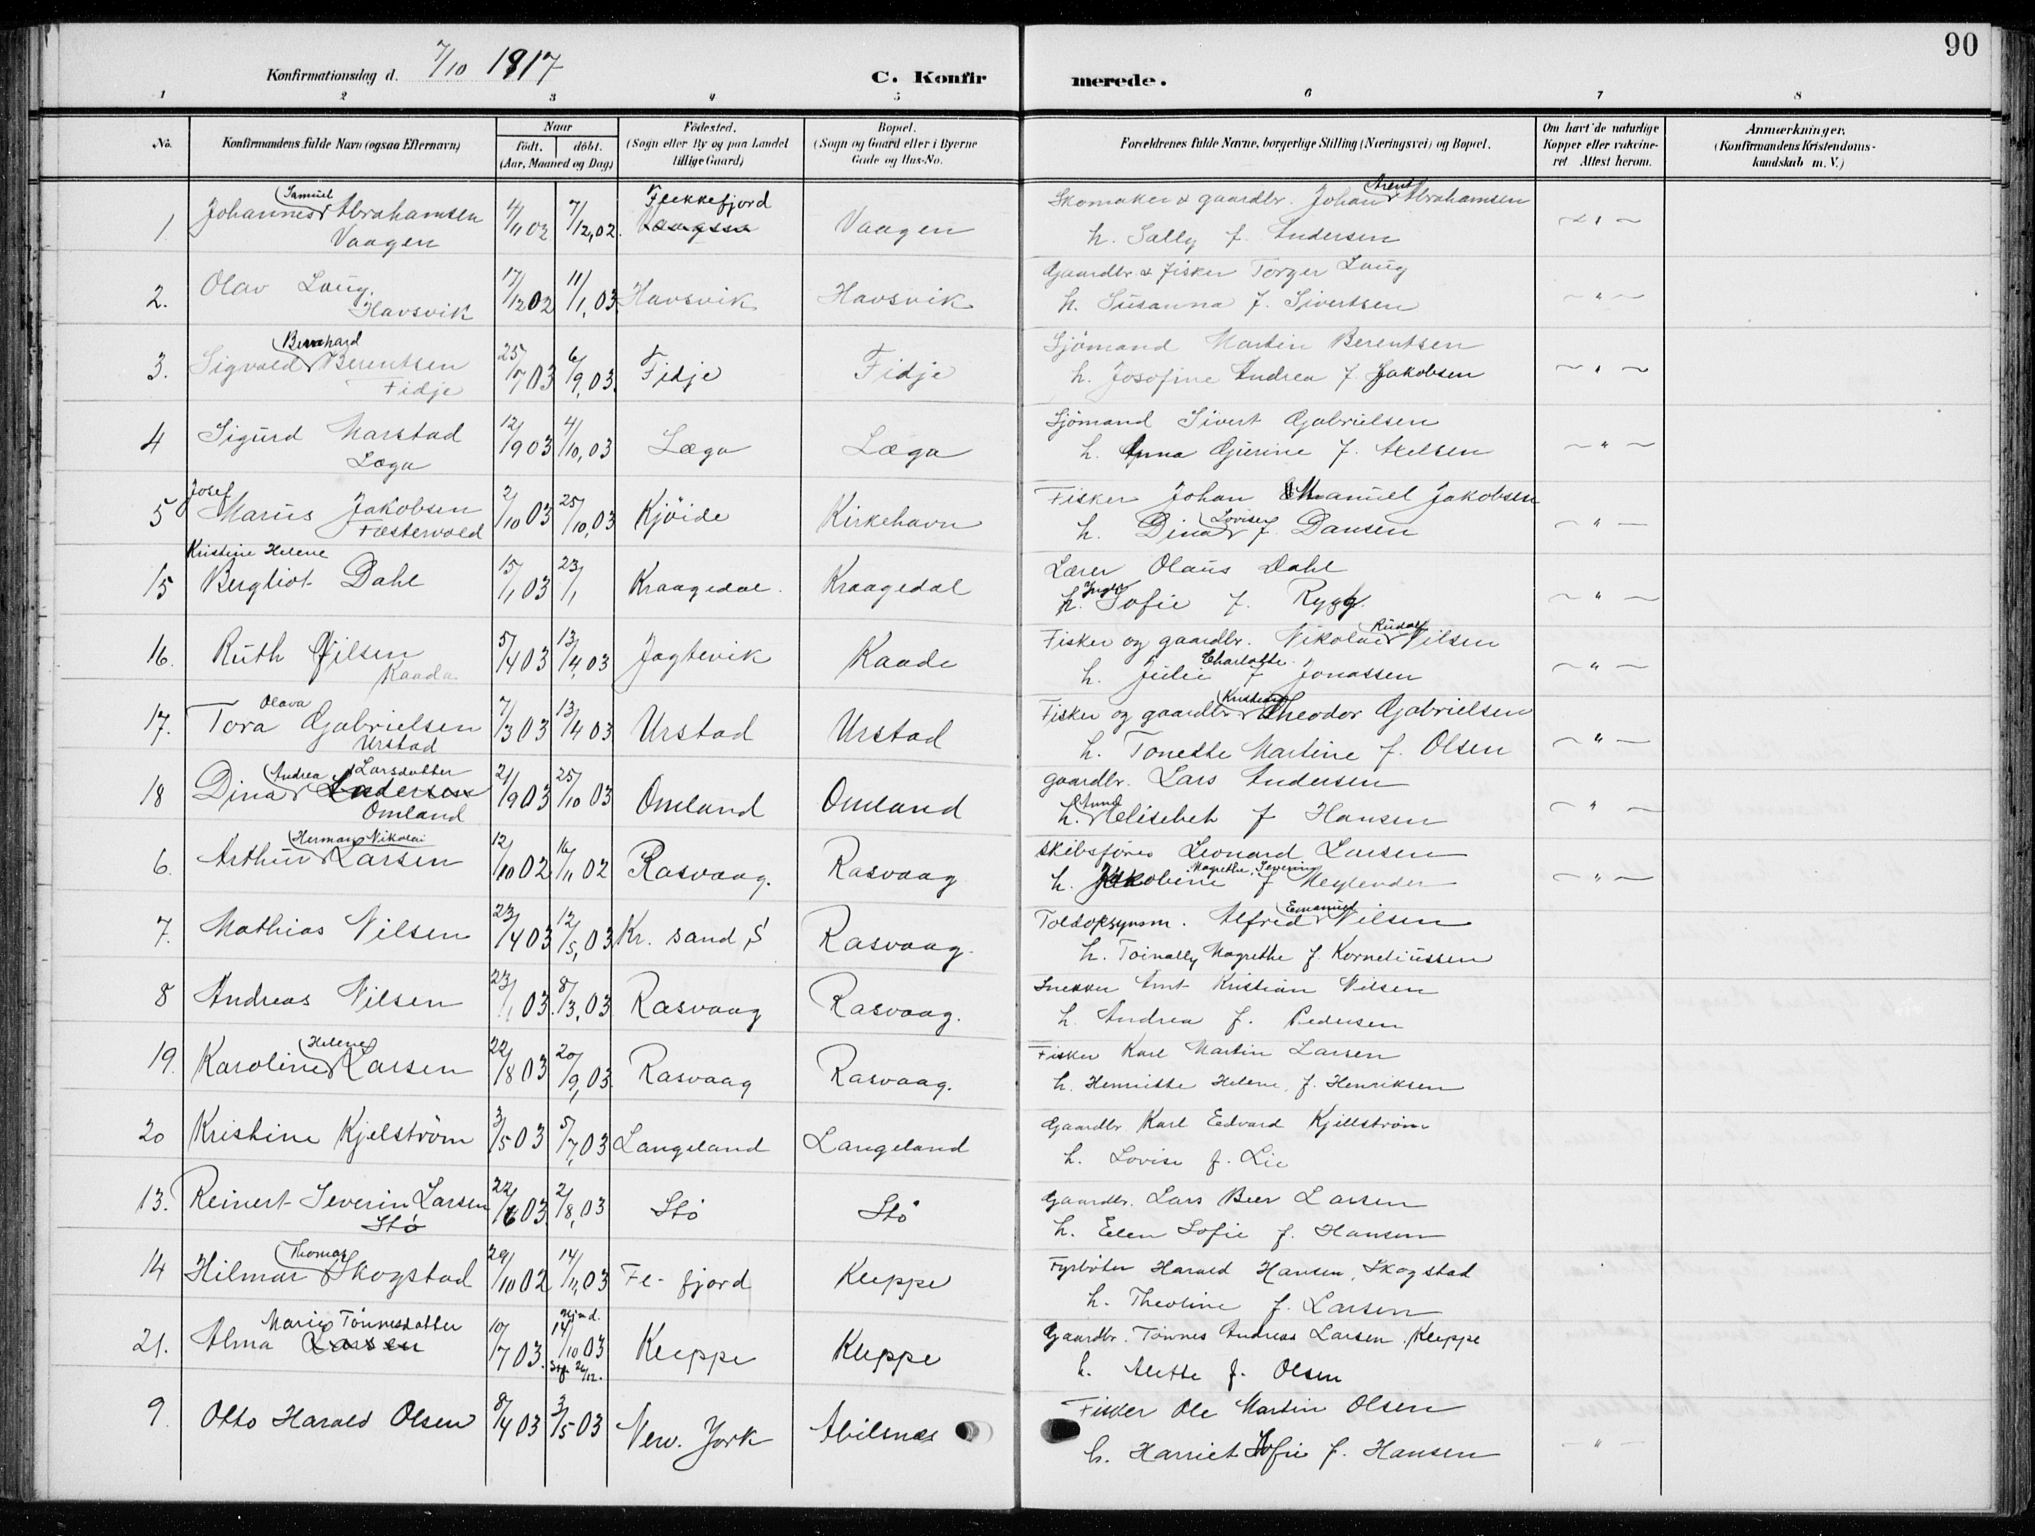 90
Konfirmationsdag d. 7/10 1917
C. Konfir merede.
1 2 3 4 5 6 7 8
No. Konfirmandens fulde Navn (ogsaa Efternavn) Naar Födested. Bopæl. Forældrenes fulde Navne, borgerlige Stilling (Næringsvei) og Bopæl. Om havt de naturlige Anmærkninger.
födt. döbt. (Sogn eller By og paa Landet (Sogn og Gaard eller i Byerne Kopper eller vakcine- (Konfirmandens Kristendoms-
(Aar, Maaned og Dag) tillige Gaard) Gade og Hus-No. ret Attest herom. kundskab m. V.)
Samuel Flekkefjord Arent
1. Johannes Abrahamsen 4/11 02 7/12, 02 Vaagen Skomaker & gaardbr. Johan Abrahamsen
Vaagen h. Sally f. Andersen
2. Olav Laug 17/12 02 11/1, 03 Havsvik Havsvik Gaardbr. & fisker Torger Laug
Havsvik h. Susanna f. Sivertsen
Bernhard
3. Sigvald Berentsen 25/7 03 6/9, 03 Fidje Fidje Sjömand Martin Berentsen
Fidje h. Josofine Andrea f. Jakobsen
4 Sigurd Marstad 12/9 03 4/10, 03 Læga Læga Sjömand Sivert Gabrielsen
Læga h. Anna Gurine f. Axelsen
Josef
5 Marius Jakobsen 2/10 03 25/10, 03 Kjöide Kirkehavn Fisker Johan Emanuel Jakobsen
Fæstervold h. Dina Lovise f. Dansen
Kristine Helene
15 Bergliot Dahl 15/1 03 23/1 Kraagedal. Kraagedal Lærer Olaus Dahl
h. Sofie f. Rygg.
Rudolf
16. Ruth Nilsen 5/4 03 13/4, 03 Jagtevik Kaade Fisker og gaardbr. Nikolai Nilsen
Kaada h. Julie Charlotte f Jonassen
Olava Kristian
17. Tora Gabrielsen 7/3 03 13/4 03 Urstad Urstad Fisker og gaardbr. Theodor Gabrielsen
Urstad h. Tonette Martine f. Olsen
Andrea Larsdatter
18 Dina Andersen 21/9 03 25/10 03 Omland Omland gaardbr. Lars Andersen
Omland h. Anna Elisebet f Hansen
Herman Nikolai
6. Arthur Larsen 12/10 02 16/11 02 Rasvaag. Rasvaag Skibsförer Leonard Larsen
h. Jakobine Magrethe, Severine f Meylender
Emanuel
7. Mathias Nilsen 23/4 03 12/5, 03 Kr. sand S Rasvaag. Toldopsynsm. Alfred Nilsen
h. Toinally Magrethe f. Korneliussen
8 Andreas Nilsen 23/1 03. 8/3, 03 Rasvaag Rasvaag. Snekker Arnt Kristian Nilsen
h. Andrea f. Pedersen
Helene
19. Karoline Larsen 22/8 03 20/9, 03 Rasvaag Rasvaag. Fisker Karl Martin Larsen
h. Henriette Helene, f. Henriksen
20 Kristine Kjelström 3/5 03 5/7, 03 Langeland Langeland Gaardbr Karl Edvard Kjellström
h. Lovise f. Lie
13. Reinert Severin Larsen 22/6 03 2/8, 03 Stö Stö Gaardbr. Lars Beer Larsen
Stö h. Elen Sofie f. Hansen
Thomas
14 Hilmar Skogstad 29/10 02 14/11, 03 Fl- fjord Kleppe Fyrböter Harald Hansen, Skogstad
h. Theoline f. Larsen
Marie Tönnesdatter Hjmd.
21. Alma Larsen 10/7 03. 14/10 03 Kleppe Kleppe Gaardbr. Tönnes Andreas Larsen, Kleppe
h. Alette f. Olsen
9. Otto Harald Olsen 8/4 03 3/5 03 New. York Abilsnæs Fisker Ole Martin Olsen
h. Harriet Sofie f. Hansen